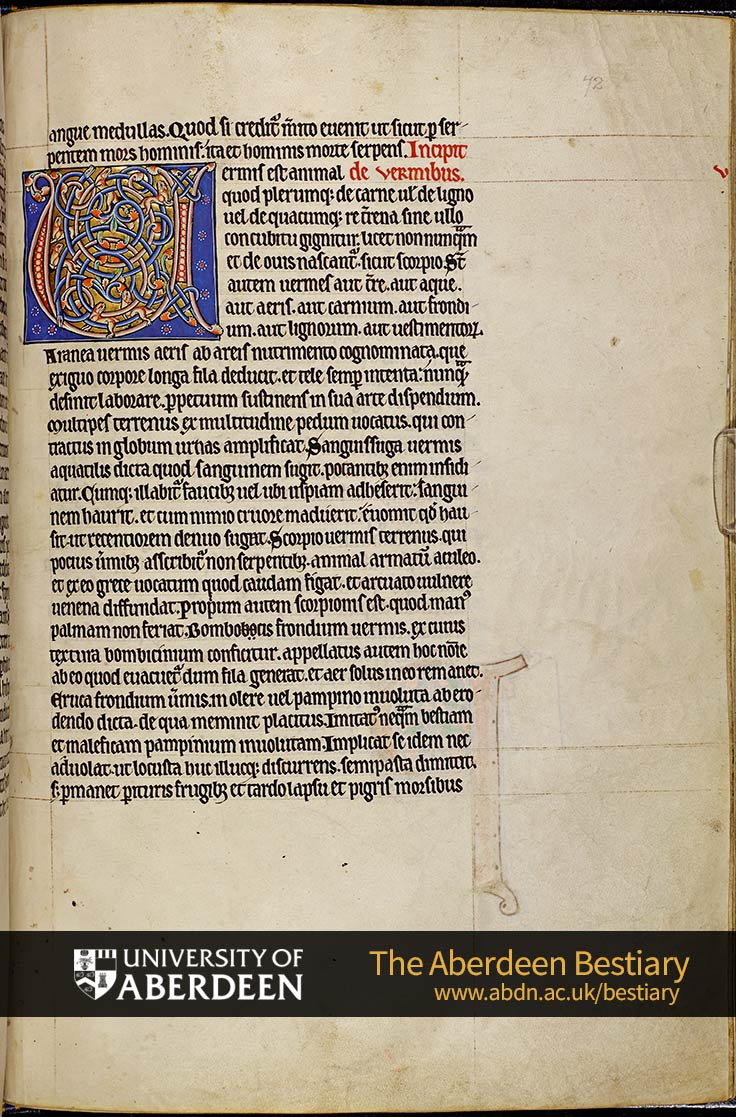 42
angue medullas. Quod si credit᷒ m̄ito euenit ut sicut p ser-
pentem mors hominis: ita et hominis morte serpens. Incipit
ermis est animal de vermibus.
quod plerumq; de carne ul̄ de ligno
uel de quacumq; re t̄rena sine ullo
concubitu gignitur. licet non nunq̄m
et de ouis nascant᷒. sicut scorpio. St̄
autem uermes aut t̄re. aut aque.
aut aeris. aut carnium. aut frondi-
um. aut lignorum. aut uestimentoꝝ.
Aranea uermis aeris ab aeris nutrimento cognominata. que
exiguo corpore longa fila deducit. et tele semp intenta: nunq̄
desinit laborare. ꝑpetuum sustinens in sua arte dispendium.
Multipes terrenus ex multitudine pedum uocatus. qui con-
tractus in globum amplificat. Sanguissuga uermis
aquatilis dicta quod sanguinem sugit. potantib; enim insidi-
atur. Cumq; illabit᷒ faucib; uel ubi uspiam adheserit: sangui-
nem haurit. et cum nimio cruore maduerit: euomit qd̄ hau-
sit. ut recentiorem denuo sugat. Scorpio uermis terrenus. qui
pocius ūmib; asscribit᷒ non serpentib;. animal armatū aculeo.
et ex eo grece uocatum quod caudam figat. et arcuato uulnere
uenena diffundat. Proprium autem scorpionis est. quod man᷒
palmam non feriat. Bombocis frondium uermis. ex cuius
textura bombicinium conficitur. appellatus autem hoc noīe
ab eo quod euacuet᷒ dum fila generat. et aer solus in eo remanet.
Eruca frondium ūmis. in olere uel pampino inuoluta ab ero-
dendo dicta. de qua meminit plautus. Imitat᷒ neq̄m bestiam
et maleficam pampinium inuolutam. Implicat se idem nec
aduolat. ut locusta huc illucq; discurrens. semipasta dimittit.
s; ꝑmanet ꝑituris frugib; et tardo lapsu et pigris morsibus
UNIVERSITY OF
ABERDEEN
The Aberdeen Bestiary
www.abdn.ac.uk/bestiary